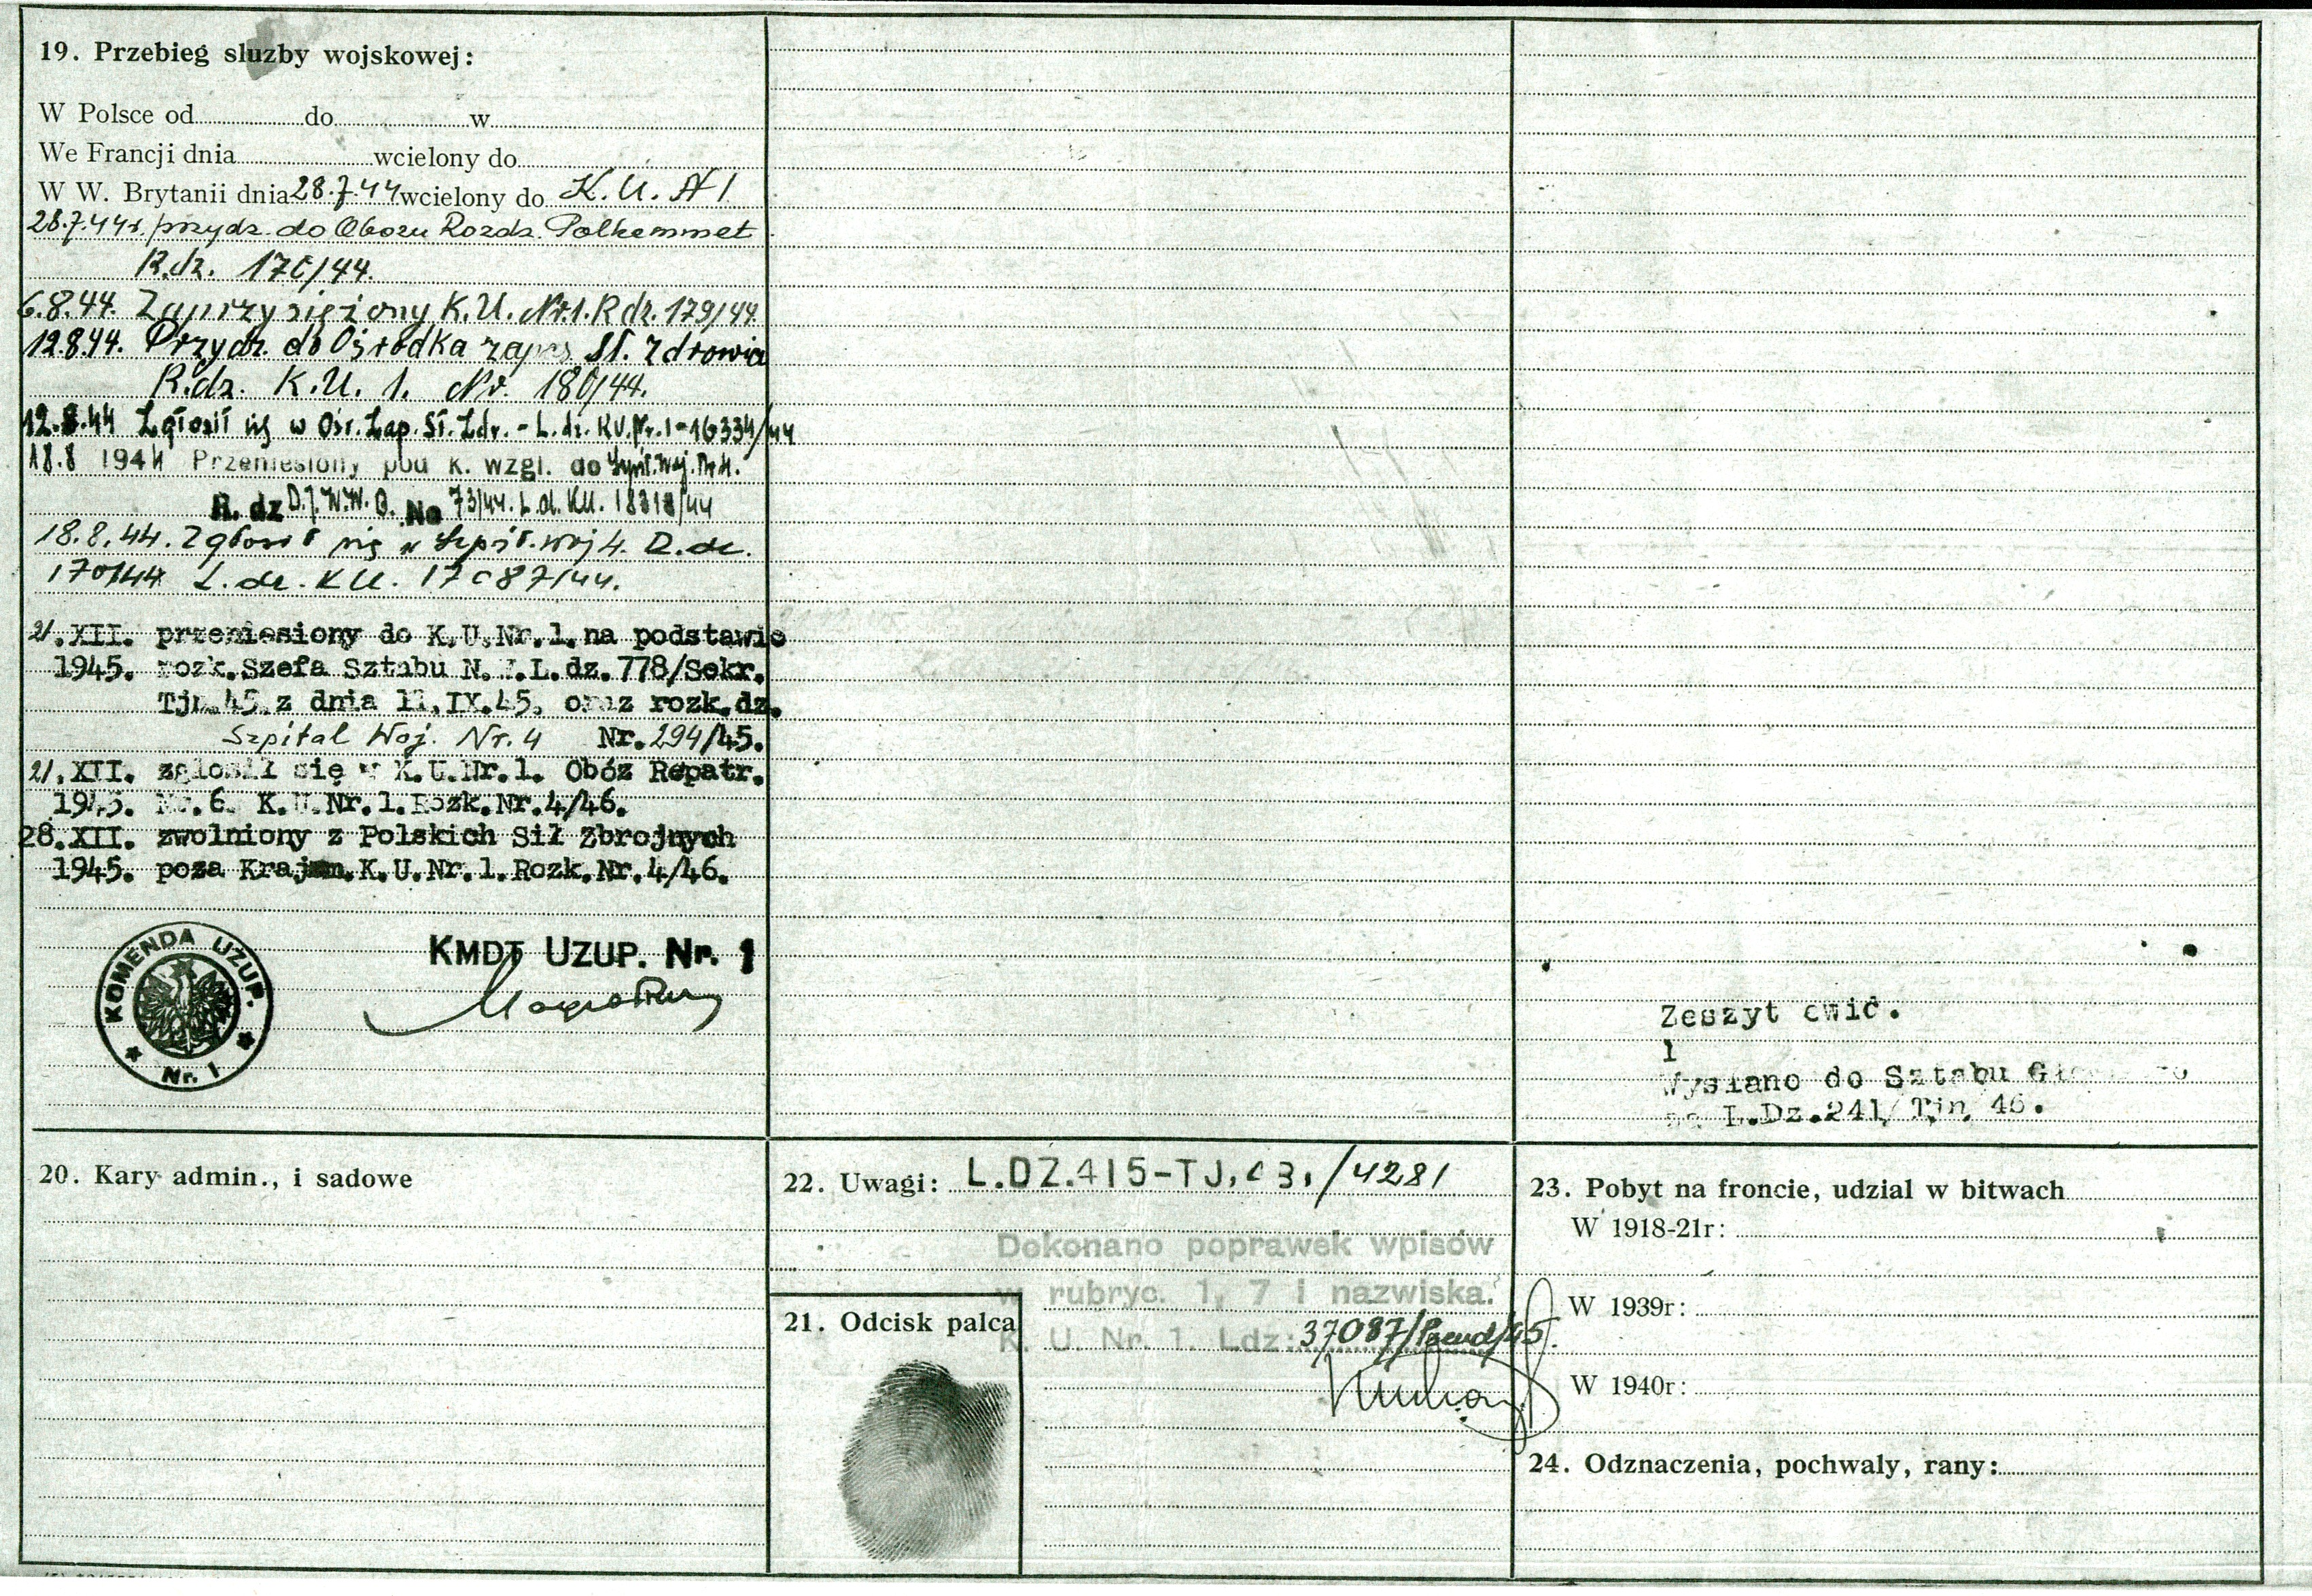 19. Przebieg sluzby wojskowej:
W Polsce od do w
We Francji dnia wcielony do
W W. Brytanii dnia 28.7.44 wcielony do K.U. № 1
28.7.44r. przydz. do Obozu Rozdz. Polkemmet
R.dz. 170/44.
6.8.44. Zaprzysiężony K.U. Nr.1. R dz. 179/44.
12.8.44. Przydz. do Ośrodka zapas Sł. Zdrowia
R.dz. K.U. 1. Nr. 180/44.
12.8.44 Zgłosił się w Ośr. Zap. Sł. Zdr. - L.dz. KU.Nr.1-16334/44
18.8 1944 Przeniesiony pod k. wzgl. do Szpit. Woj. Nr 4.
R. dz No 73/44. L.d. KU. 18318/44
18.8.44. Zgłosił się w Szpit. woj 4. R.dz.
170/44 L.dz. KU. 17087/44.
21.XII. przeniesiony do K.U.Nr.1.na podstawie
1945. rozk.Szefa Sztabu N. L.dz.778/Sekr.
Tjn.45.z dnia 11.IX.45. oraz rozk.dz.
Szpital Woj. Nr. 4 Nr. 294/45.
21.XII. zgłosił się w K.U.Nr.1. Obóz Repatr.
1945. Nr.6. K.U.Nr.1.Rozk.Nr.4/46.
28.XII. zwolniony z Polskich Sił Zbrojnych
1945. poza Krajem.K.U.Nr.1.Rozk.Nr.4/46.
KOMENDA UZUP.
Nr. 1
KMDT UZUP. Nr. 1
Zeszyt ewid.
1
Wysłano do Sztabu
L.Dz.241/Tjn. 46.
20. Kary admin., i sadowe
22. Uwagi: L.DZ.415-TJ. /4281
Dokonano poprawek wpisów
w rubryc. 1, 7 i nazwiska.
K. U. Nr. 1. Ldz: 37087/Pseud/45.
21. Odcisk palca
23. Pobyt na froncie, udzial w bitwach
W 1918-21r:
W 1939r:
W 1940r:
24. Odznaczenia, pochwaly, rany: